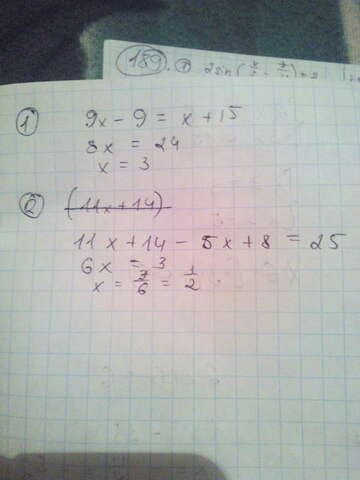 189.
2sin(
1
9x - 9 = x + 15
8x = 24
x = 3
2
(11x+14)
11x+14 - 5x+8 = 25
6x = 3
x = 3/6 = 1/2